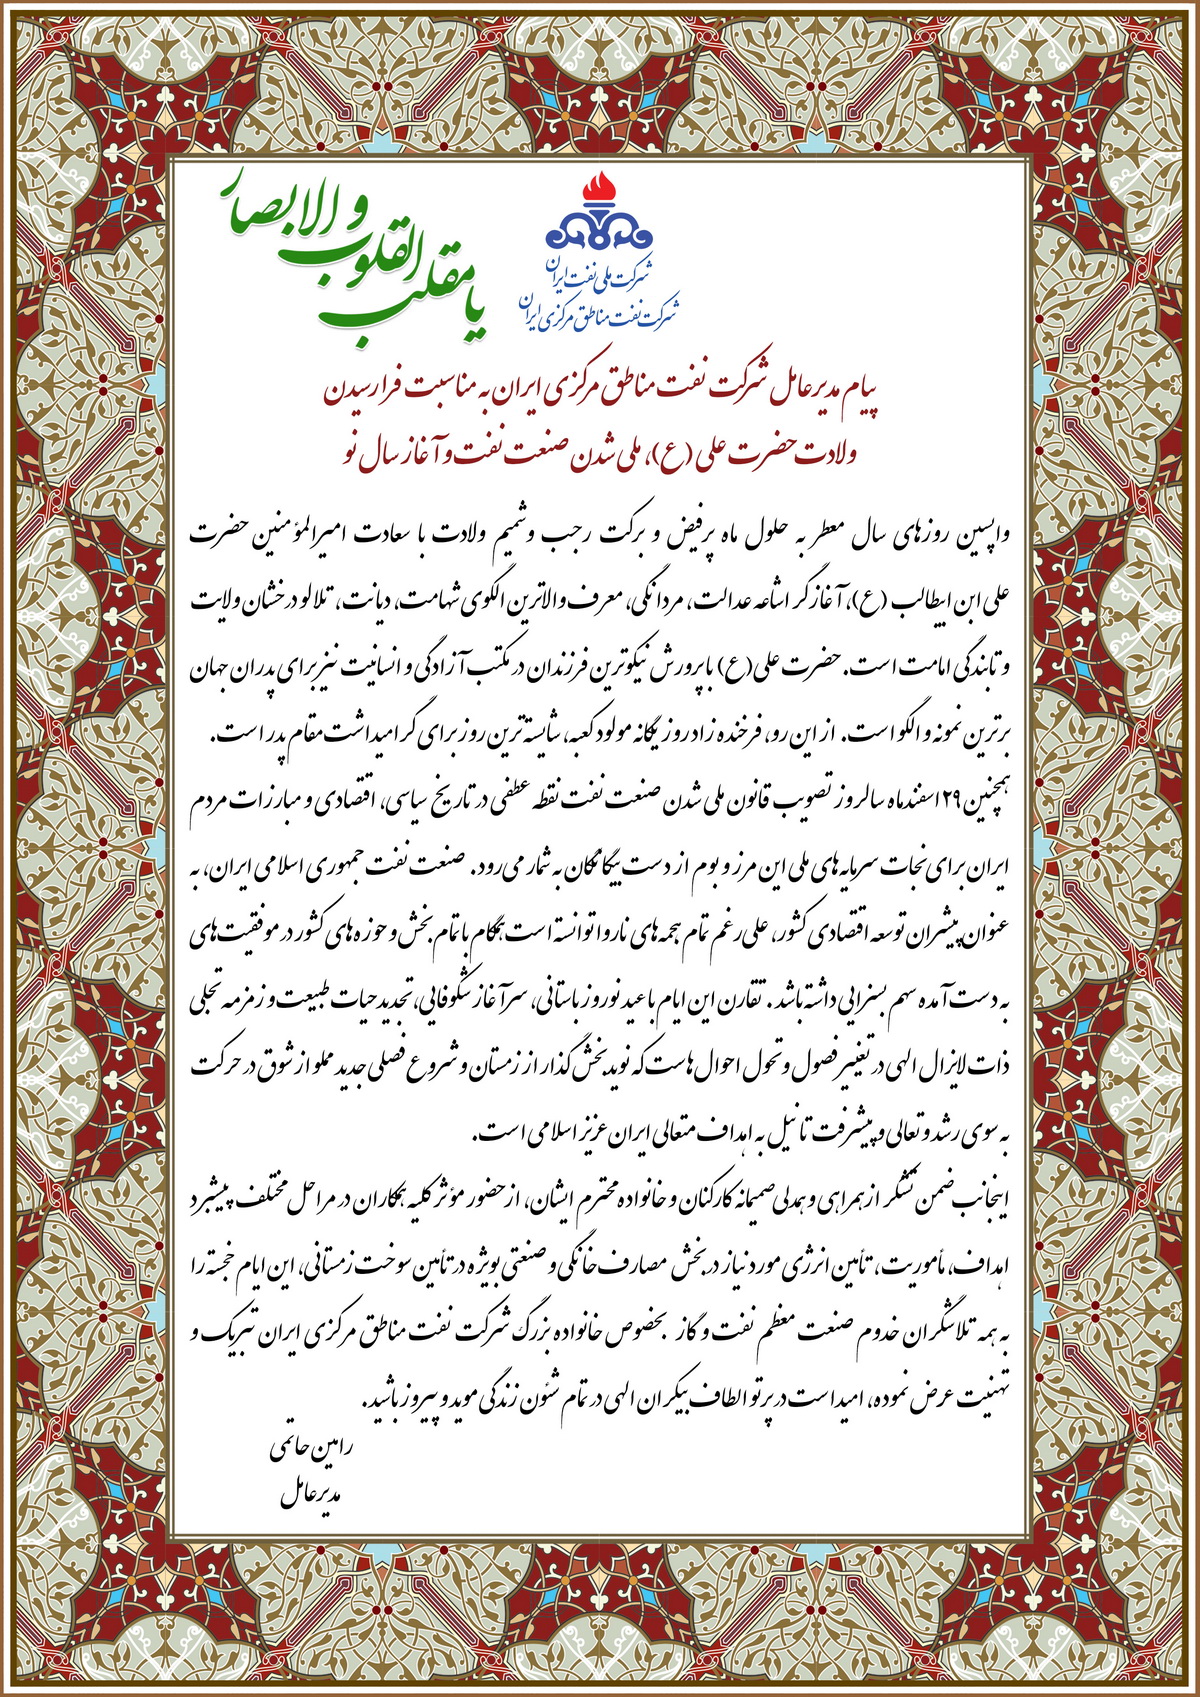 یا مقلب القلوب و الابصار
شرکت ملی نفت ایران
شرکت نفت مناطق مرکزی ایران
پیام مدیرعامل شرکت نفت مناطق مرکزی ایران به مناسبت فرارسیدن
ولادت حضرت علی (ع)، ملی شدن صنعت نفت و آغاز سال نو
واپسین روزهای سال معطر به حلول ماه پرفیض و برکت رجب و شمیم ولادت با سعادت امیرالمؤمنین حضرت
علی ابن ابیطالب (ع)، آغازگر اشاعه عدالت، مردانگی، معرف والاترین الگوی شهامت، دیانت، تلالو درخشان ولایت
و تابندگی امامت است. حضرت علی(ع) با پرورش نیکوترین فرزندان در مکتب آزادگی و انسانیت نیز برای پدران جهان
برترین نمونه و الگو است. از این رو، فرخنده زاد روز یگانه مولود کعبه، شایسته ترین روز برای گرامیداشت مقام پدر است.
همچنین ۲۹ اسفندماه سالروز تصویب قانون ملی شدن صنعت نفت نقطه عطفی در تاریخ سیاسی، اقتصادی و مبارزات مردم
ایران برای نجات سرمایه های ملی این مرز و بوم از دست بیگانگان به شمار می رود. صنعت نفت جمهوری اسلامی ایران، به
عنوان پیشران توسعه اقتصادی کشور، علی رغم تمام هجمه های ناروا توانسته است همگام با تمام بخش و حوزه های کشور در موفقیت های
به دست آمده سهم بسزایی داشته باشد. تقارن این ایام با عید نوروز باستانی، سرآغاز شکوفایی، تجدید حیات طبیعت و زمزمه تجلی
ذات لایزال الهی در تغییر فصول و تحول احوال هاست که نویدبخش گذار از زمستان و شروع فصلی جدید مملو از شوق در حرکت
به سوی رشد و تعالی و پیشرفت تا نیل به اهداف متعالی ایران عزیز اسلامی است.
اینجانب ضمن تشکر از همراهی و همدلی صمیمانه کارکنان و خانواده محترم ایشان، از حضور مؤثر کلیه همکاران در مراحل مختلف پیشبرد
اهداف، مأموریت، تأمین انرژی مورد نیاز در بخش مصارف خانگی و صنعتی بویژه در تأمین سوخت زمستانی، این ایام خجسته را
به همه تلاشگران خدوم صنعت معظم نفت و گاز بخصوص خانواده بزرگ شرکت نفت مناطق مرکزی ایران تبریک و
تهنیت عرض نموده، امید است در پرتو الطاف بیکران الهی در تمام شئون زندگی موید و پیروز باشید.
رامین حاتمی
مدیرعامل